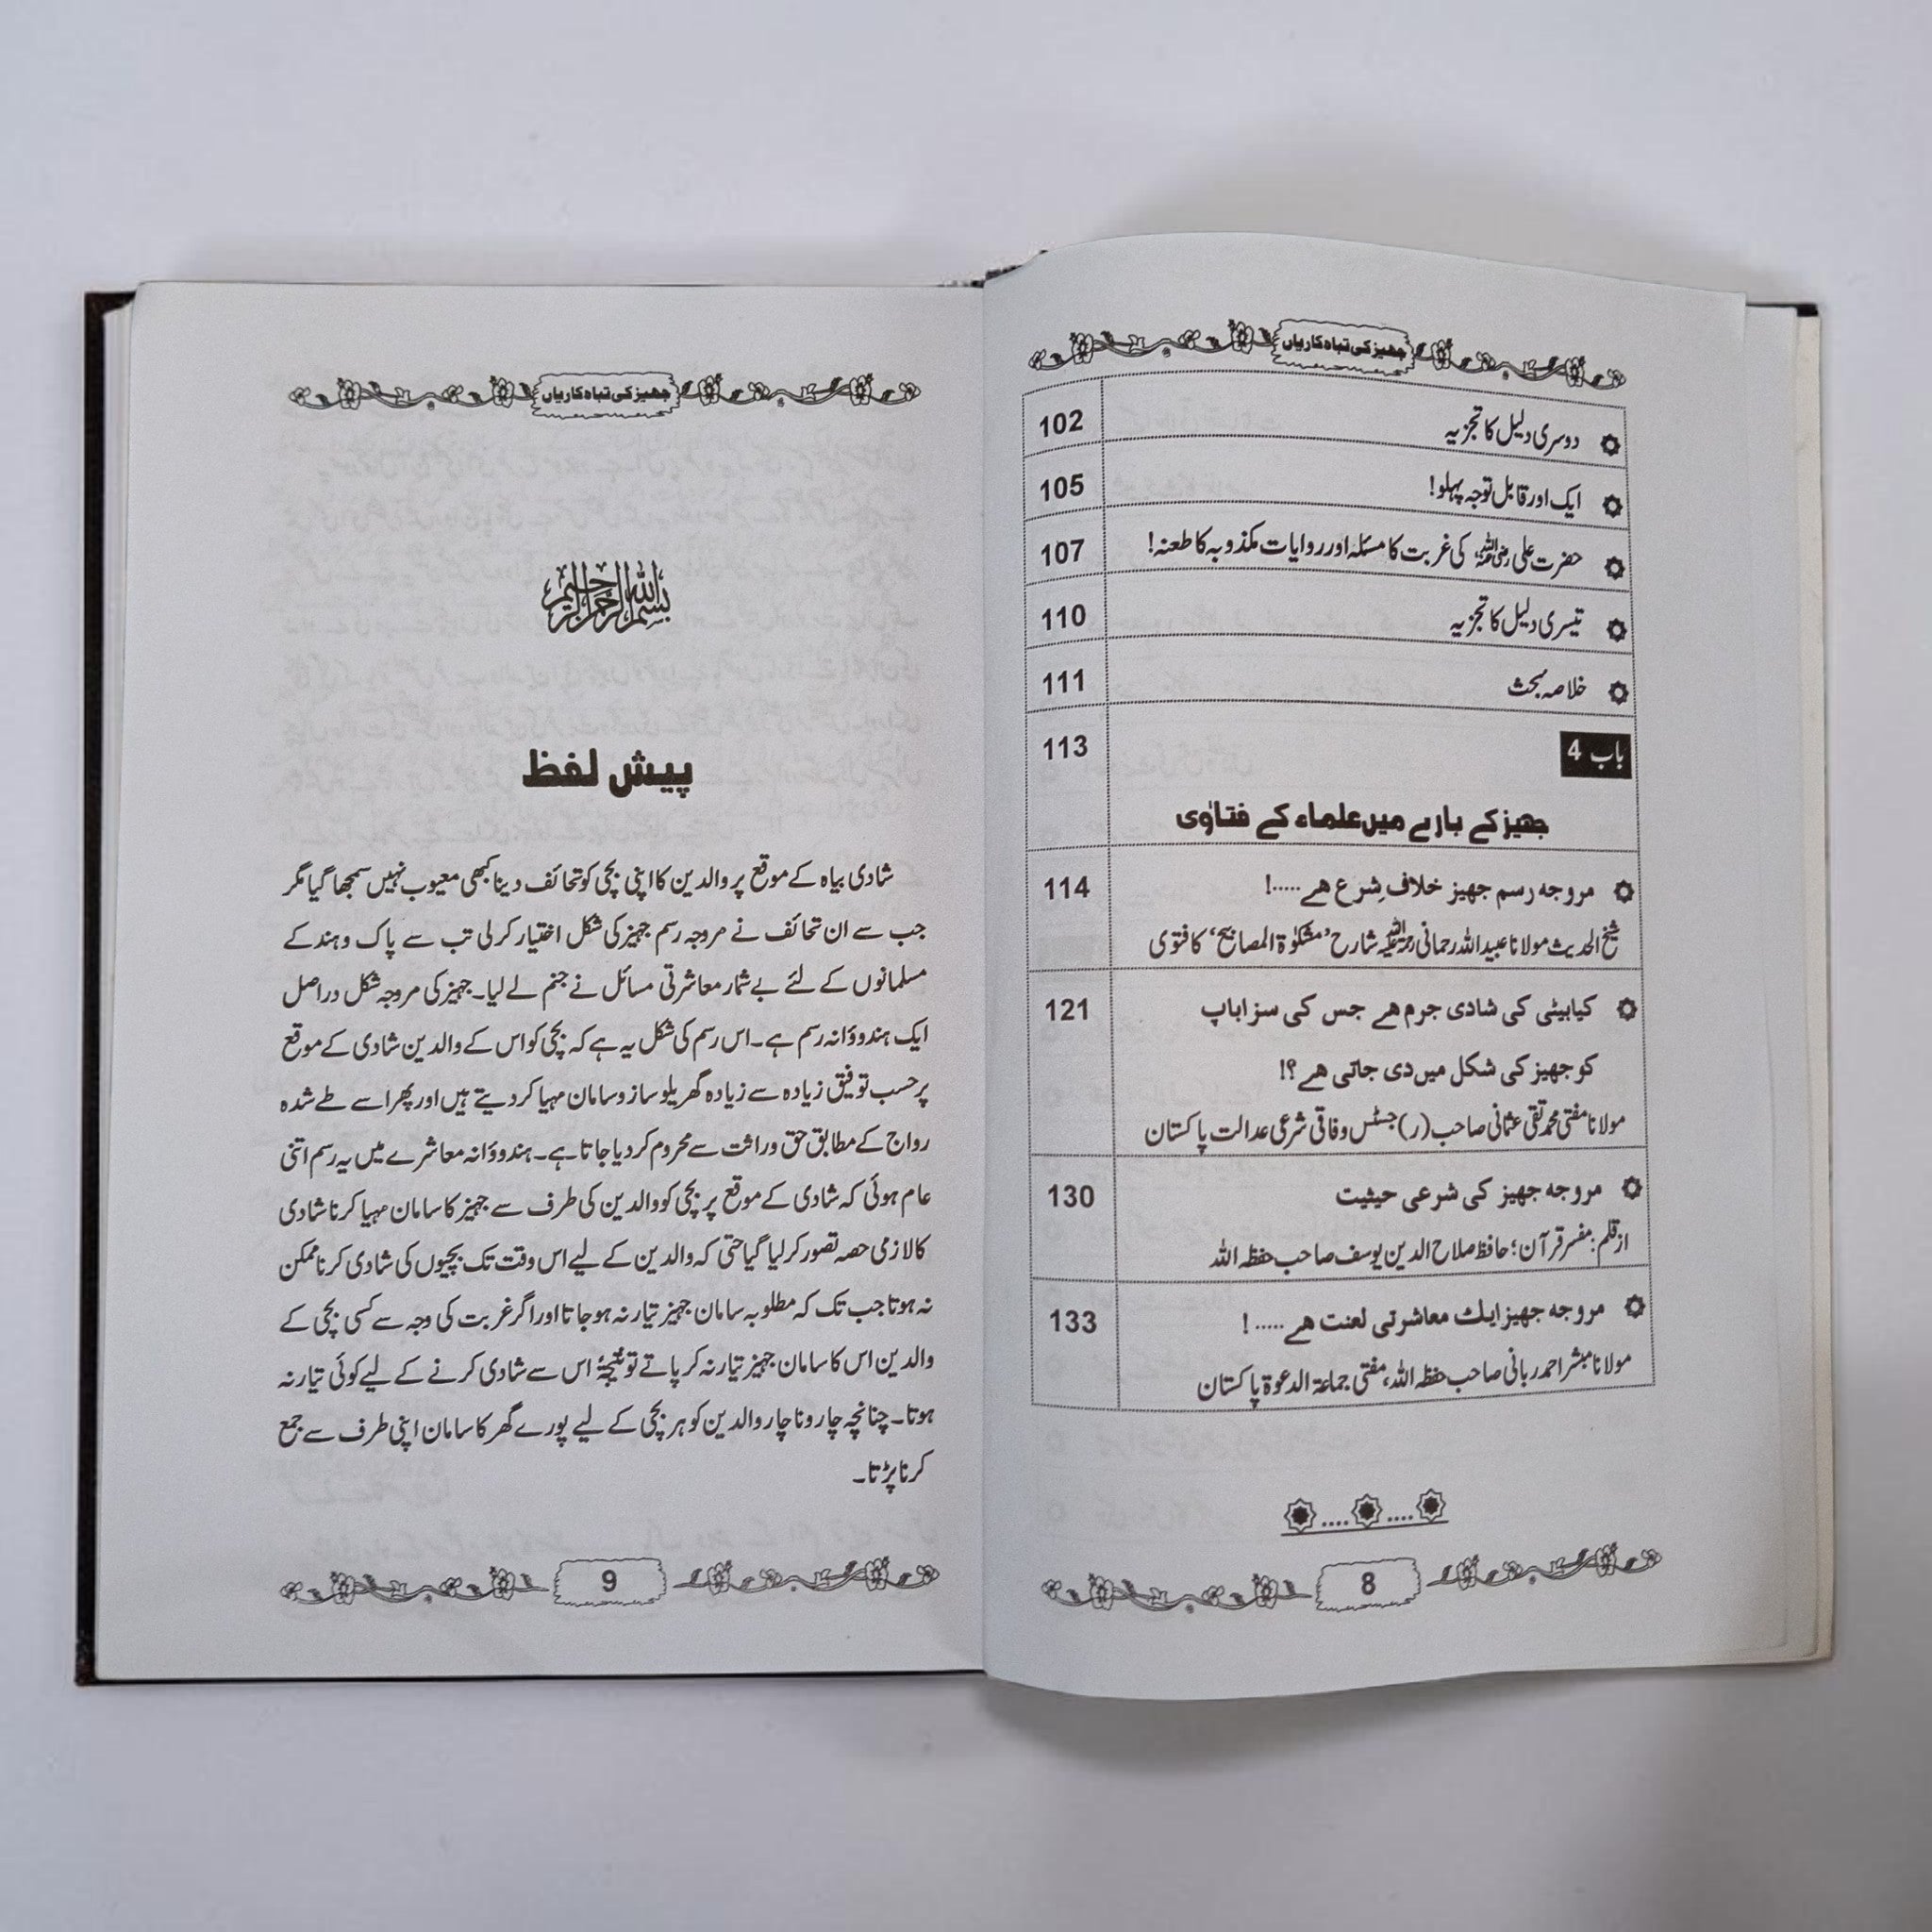 جهیز کی تباہ کاریاں
دوسری دلیل کا تجزیہ 102
ایک اور قابل توجہ پہلو! 105
حضرت علی رضی اللہ عنہ کی غربت کا مسئلہ اور روایات مکذوبہ کا طعنہ! 107
تیسری دلیل کا تجزیہ 110
خلاصہ بحث 111
باب 4 113
جهیز کے بارے میں علماء کے فتاوٰی
مروجہ رسم جهیز خلافِ شرع ہے.....! 114
شیخ الحدیث مولانا عبیداللہ رحمانی رحمۃ اللہ علیہ شارح ’مشکوٰۃ المصابیح‘ کا فتوی
کیا بیٹی کی شادی جرم ہے جس کی سزا باپ 121
کو جهیز کی شکل میں دی جاتی ہے؟!
مولانا مفتی محمد تقی عثمانی صاحب (ر) جسٹس وفاقی شرعی عدالت پاکستان
مروجہ جهیز کی شرعی حیثیت 130
از قلم: مفسر قرآن؛ حافظ صلاح الدین یوسف صاحب حفظہ اللہ
مروجہ جهیز ایک معاشرتی لعنت ہے.....! 133
مولانا مبشر احمد ربانی صاحب حفظہ اللہ، مفتی جماعۃ الدعوۃ پاکستان
8
جهیز کی تباہ کاریاں
بسم اللہ الرحمن الرحیم
پیش لفظ
شادی بیاہ کے موقع پر والدین کا اپنی بچی کو تحائف دینا کبھی معیوب نہیں سمجھا گیا مگر
جب سے ان تحائف نے مروجہ رسم جہیز کی شکل اختیار کر لی تب سے پاک و ہند کے
مسلمانوں کے لئے بے شمار معاشرتی مسائل نے جنم لے لیا۔ جہیز کی مروجہ شکل دراصل
ایک ہندووٴانہ رسم ہے۔ اس رسم کی شکل یہ ہے کہ بچی کو اس کے والدین شادی کے موقع
پر حسب توفیق زیادہ سے زیادہ گھریلو ساز و سامان مہیا کر دیتے ہیں اور پھر اسے طے شدہ
رواج کے مطابق حق وراثت سے محروم کر دیا جاتا ہے۔ ہندووٴانہ معاشرے میں یہ رسم اتنی
عام ہوئی کہ شادی کے موقع پر بچی کو والدین کی طرف سے جہیز کا سامان مہیا کرنا شادی
کا لازمی حصہ تصور کر لیا گیا حتی کہ والدین کے لیے اس وقت تک بچیوں کی شادی کرنا ممکن
نہ ہوتا جب تک کہ مطلوبہ سامان جہیز تیار نہ ہو جاتا اور اگر غربت کی وجہ سے کسی بچی کے
والدین اس کا سامان جہیز تیار نہ کر پاتے تو نتیجۃً اس سے شادی کرنے کے لیے کوئی تیار نہ
ہوتا۔ چنانچہ چار و ناچار والدین کو ہر بچی کے لیے پورے گھر کا سامان اپنی طرف سے جمع
کرنا پڑتا۔
9